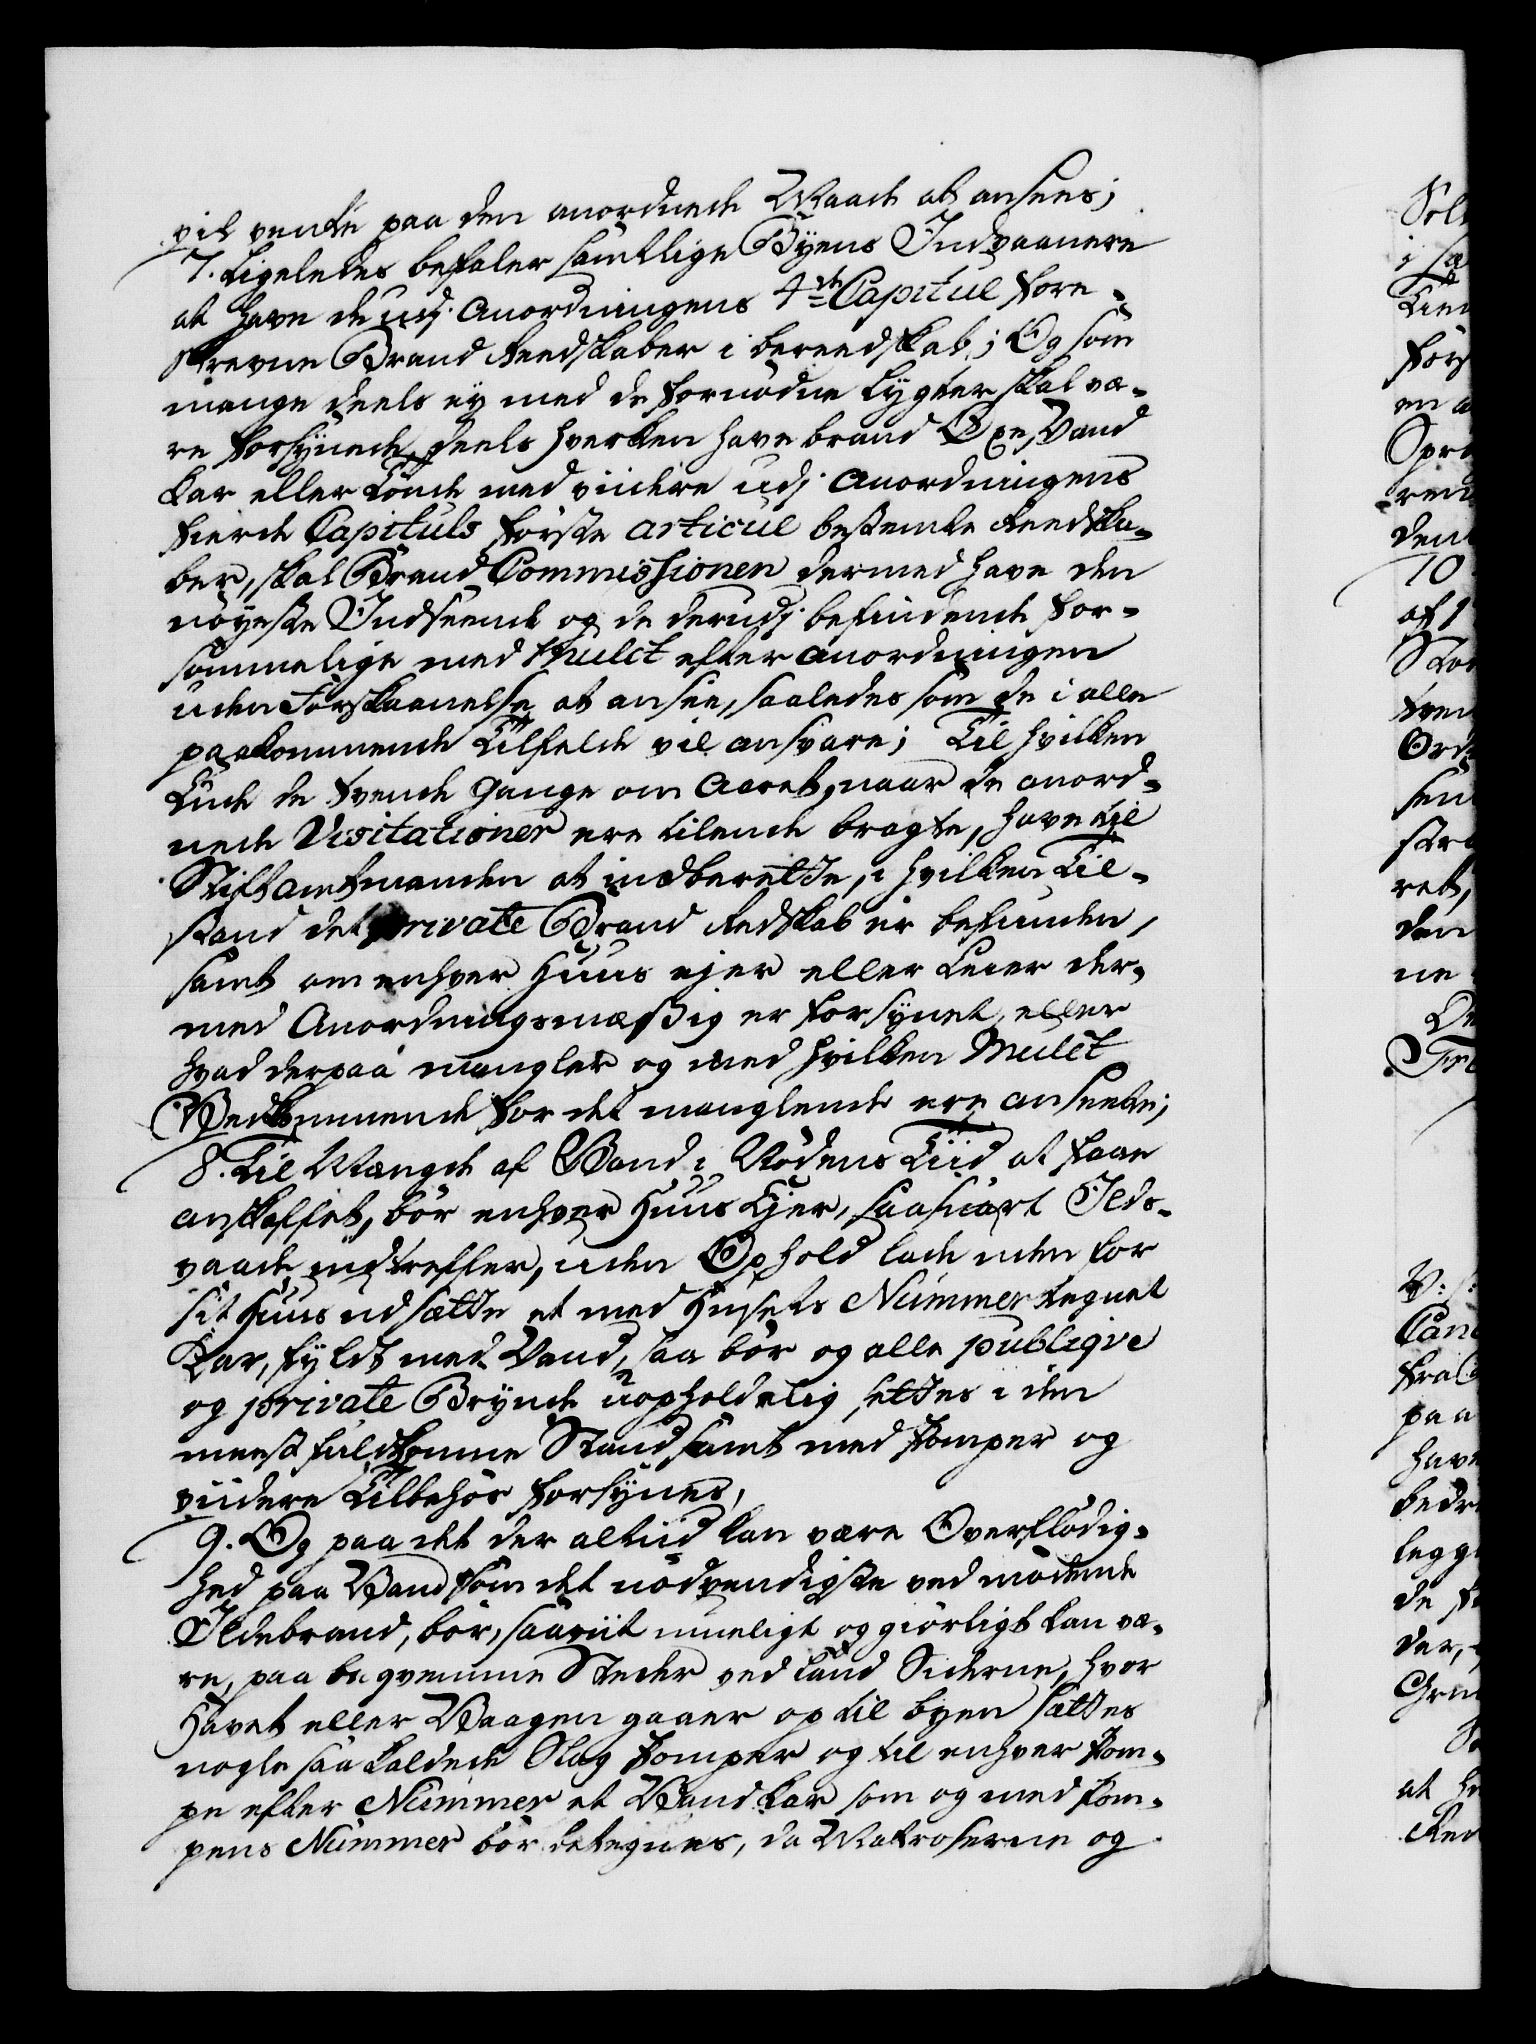 vil vente paa den anordnede Maade at ansees;
7. Ligeledes befales samtlige Byens Indvaanere
at have de udj Anordningens 4de Capitul fore-
skrevne Brand Reedskaber i bereedskab; Og som
mange deels ey med de fornødne Lygter skal væ-
re forsynede, deels hverken have brand Øxe, Vand
Kar eller Tønde med viidere udj Anordningens
fierde Capituls første articul bestemte Reedska-
ber, skal Brand Commissionen dermed have den
nøyeste Indseende og de derudj befindende for-
sømmelige med Mulct efter Anordningen
uden Forskaanelse at ansee, saaledes som de i alle
paakommende Tilfælde vil ansvare; Til hvilken
Ende de tvende Gange om Aaret, naar de anord-
nede Visitationer ere tilende bragte, have til
Stiftamtmanden at indberette, i hvilken Til-
stand det private Brand Redskab er befunden,
samt om enhver Huus ejer eller Leier der-
med Anordningsmæssig er forsynet, eller
hvad derpaa mangler og med hvilken Mulct
Vedkommende for det manglende ere anseete;
8. Til Mængde af Vand i Nødens Tiid at faae
anskaffet, bør enhver Huus Ejer, saasnart Ilds-
vaade indtreffer, uden Ophold lade uden for
sit Huus udsætte et med Husets Nummer tegnet
Kar, fyldt med Vand, saa bør og alle publiqve
og private Brynde uopholdelig settes i den
meest fuldkomne Stand samt med Pomper og
viidere Tilbehør forsynes,
9. Og paa det der altiid kan være Overflødig-
hed paa Vand som det nødvendigste ved mødende
Ildebrand, bør, saaviit mueligt og giørligt kan væ-
re, paa beqvemme Steder ved Land Siderne, hvor
Havet eller Vaagen gaaer op til byen sættes
nogle saa kaldede Slag Pomper og til enhver Pom-
pe efter Nummer et Vand Kar som og med Pom-
pens Nummer bør betegnes, da Matroserne og